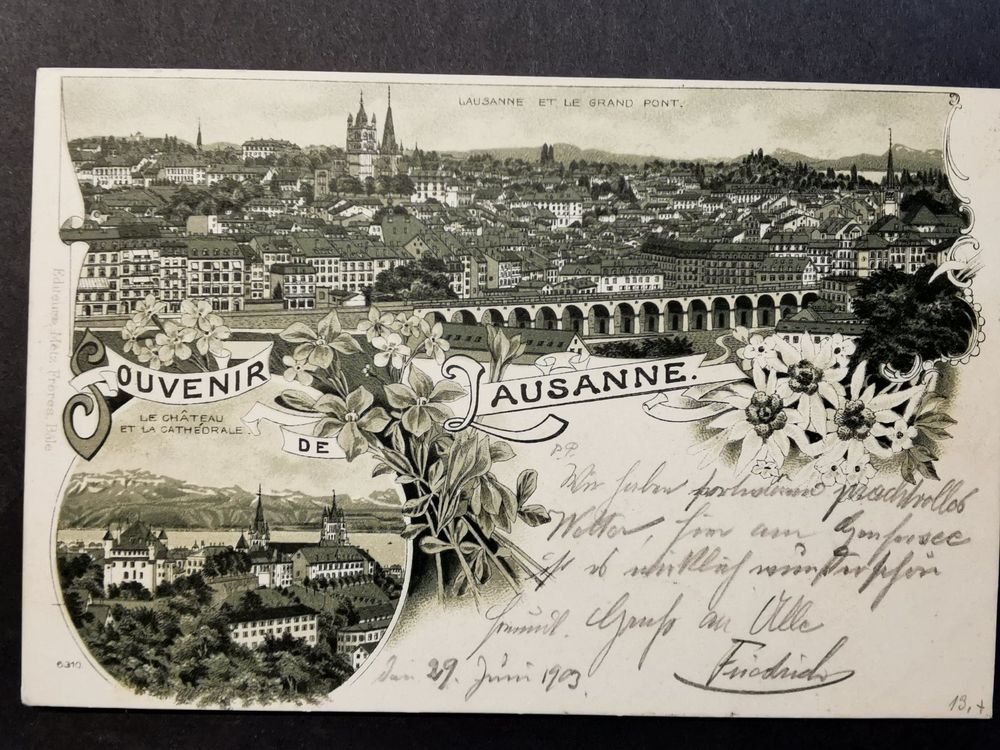 LAUSANNE ET LE GRAND PONT.
Editeurs Metz Frères, Bâle
SOUVENIR
DE
LAUSANNE.
LE CHÂTEAU
ET LA CATHÉDRALE.
P.P.
Wir haben prachtvolles
Wetter, hier am Genfersee
ist es wirklich wunderschön
Gruß an Alle
Friedrich
den 29. Juni 1903
6310.
13.+